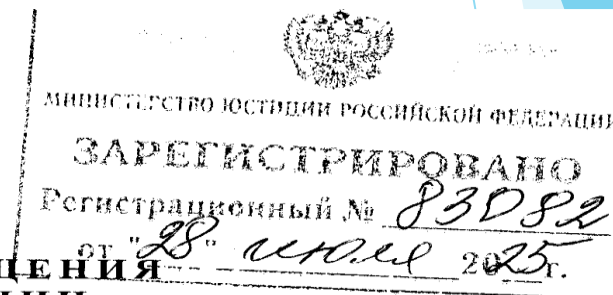 МИНИСТЕРСТВО ЮСТИЦИИ РОССИЙСКОЙ ФЕДЕРАЦИИ
ЗАРЕГИСТРИРОВАНО
Регистрационный № 83082
от "28" июля 2025г.
ЩЕНИЯ